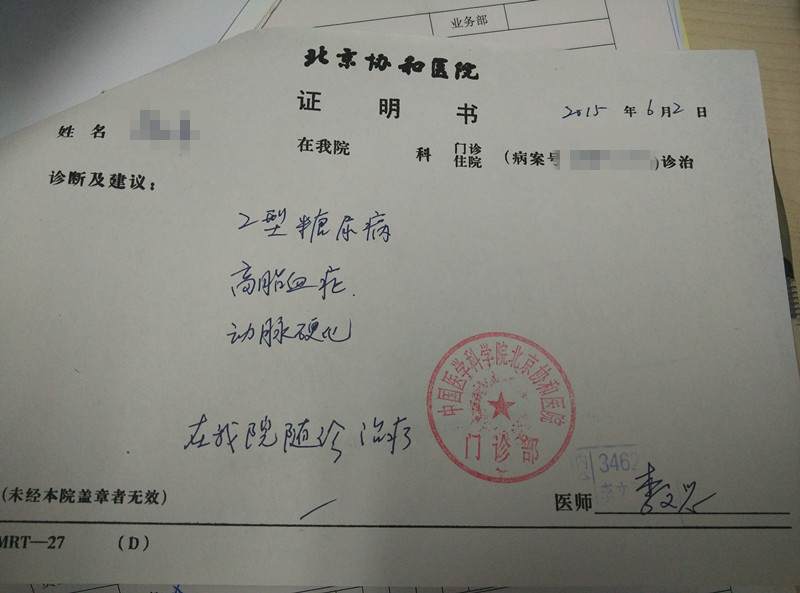 业务部
北京协和医院
证明书
2015年6月2日
姓名
在我院 科 门诊 住院 (病案号 )诊治
诊断及建议：
2型糖尿病
高脂血症.
动脉硬化
在我院随诊治疗
中国医学科学院北京协和医院
门诊部
3462
(未经本院盖章者无效)
医师 李文
MRT—27 (D)